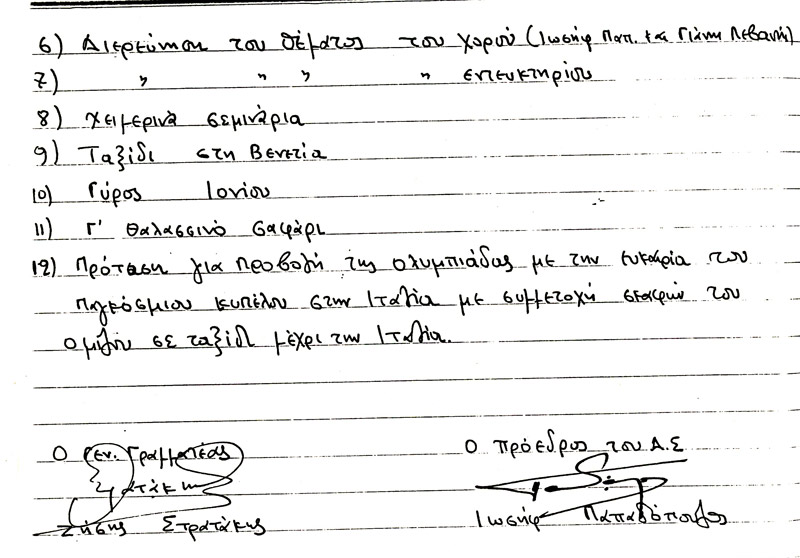 6) Διερεύνηση του θέματος του χορού (Ιωσήφ Παπ. και Γιάννη Λεβαντή)
7) " " " " εντευκτηρίου
8) χειμερινά σεμινάρια
9) Ταξίδι στη Βενετία
10) Γύρος Ιονίου
11) Γ' θαλασσινό σαφάρι
12) Πρόταση για προβολή της ολυμπιάδας με την ευκαιρία του
παγκόσμιου κυπέλου στην Ιταλία με συμμετοχή σκαφών του
ομίλου σε ταξίδι μέχρι την Ιταλία.
Ο Γεν. Γραμματέας
Ζήσης Στρατάκης
Ο πρόεδρος του Δ.Σ
Ιωσήφ Παπαδόπουλος